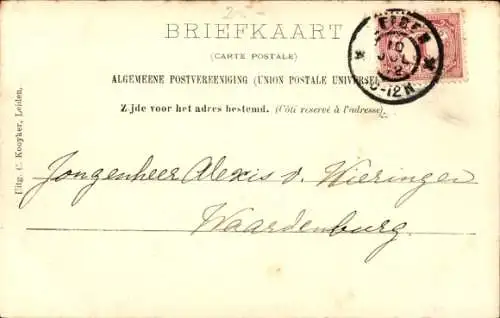 2.-
BRIEFKAART
(CARTE POSTALE)
ALGEMEENE POSTVEREENIGING (UNION POSTALE UNIVERSEL
Zijde voor het adres bestemd. (Côté réservé à l'adresse).
LEIDEN
10
JUL
2
Uitg. C. Kooyker, Leiden.
Jongenheer Alexis v. Wieringen
Waardenburg.